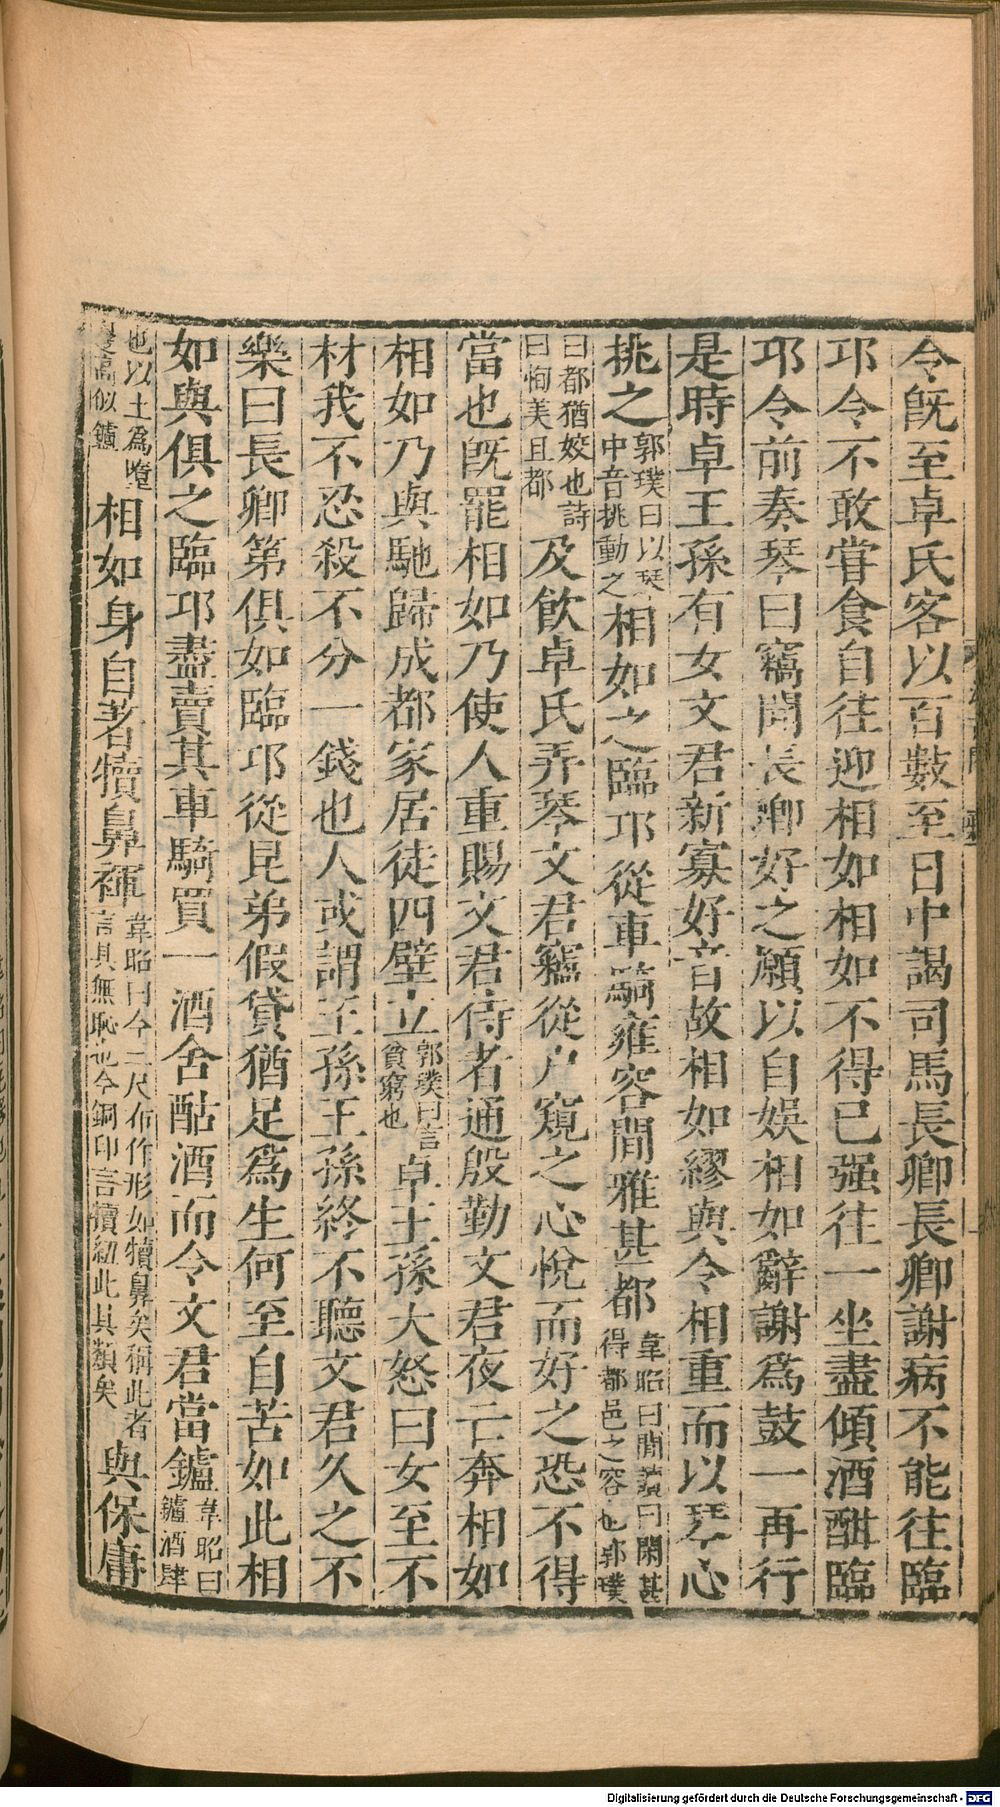 令旣至卓氏客以百數至日中謁司馬長卿長卿謝病不能往臨
邛令不敢嘗食自往迎相如相如不得已强往一坐盡傾酒酣臨
邛令前奏琴曰竊聞長卿好之願以自娛相如辭謝爲鼓一再行
是時卓王孫有女文君新寡好音故相如繆與令相重而以琴心
挑之郭璞曰以琴中音挑動之相如之臨邛從車騎雍容閒雅甚都韋昭曰閒讀曰閑甚得都邑之容也郭璞
曰都猶姣也詩曰恂美且都及飮卓氏弄琴文君竊從户窺之心悅而好之恐不得
當也旣罷相如乃使人重賜文君侍者通殷勤文君夜亡奔相如
相如乃與馳歸成都家居徒四壁立郭璞曰言貧窮也卓王孫大怒曰女至不
材我不忍殺不分一錢也人或謂王孫王孫終不聽文君久之不
樂曰長卿第俱如臨邛從昆弟假貸猶足爲生何至自苦如此相
如與俱之臨邛盡賣其車騎買一酒舍酤酒而令文君當鑪韋昭曰鑪酒肆
也以土爲墮邊高似鑪相如身自著犢鼻褌韋昭曰今三尺布作形如犢鼻矣稱此者言其無恥也今銅印言犢紐此其類矣與保庸
Digitalisierung gefördert durch die Deutsche Forschungsgemeinschaft - DFG